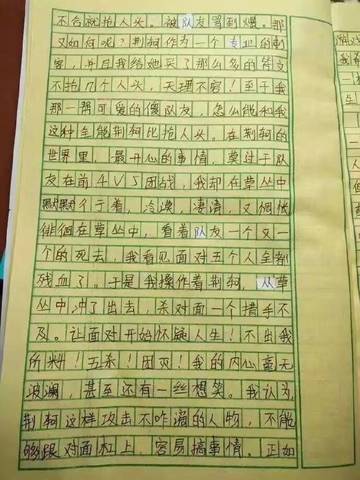 不合就抢人头。被队友骂到爆。那
又如何呢？荆轲作为一个专业的刺
客，并且我给她买了那么多的铭文
不拍几个人头，天理不容！至于我
那一帮可爱的傻队友，怎么能和我
这种全能荆轲比抢人头。在荆轲的
世界里，最开心的事情，莫过于队
友在前4V5团战，我却在草丛中
默默行于着，冷漠，凄清，又惆怅
徘徊在草丛中，看着队友一个又一
个的死去，我看见面对五个人全部
残血了。于是我操作着荆轲，从草
丛中冲了出去，杀对面一个措手不
及。让面对开始怀疑人生！不出我
所料！五杀！团灭！我的内心毫无
波澜，甚至还有一丝想笑。我认为，
荆轲这样攻击不咋滴的人物，不能
够跟对面杠上，容易搞事情。正如